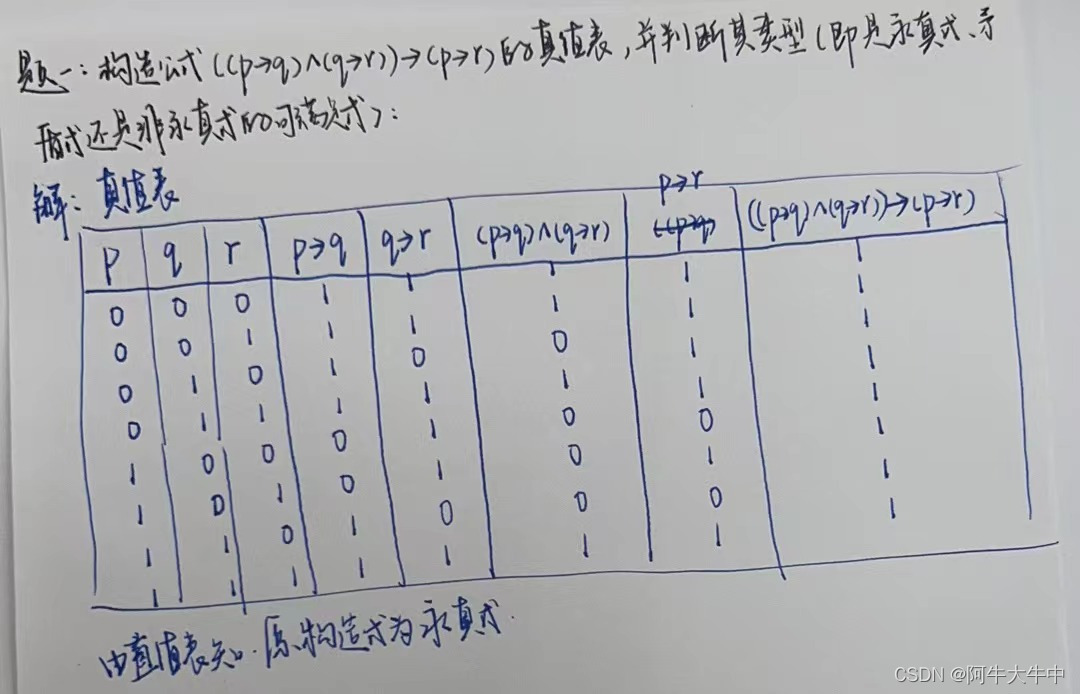 题一：构造公式((p→q)∧(q→r))→(p→r)的真值表，并判断其类型(即是永真式、矛
盾式还是非永真式的可满足式)：
解：真值表
p→r
p q r p→q q→r (p→q)∧(q→r) ((p→q) ((p→q)∧(q→r))→(p→r)
0 0 0 1 1 1 1 1
0 0 1 1 1 1 1 1
0 1 0 1 0 0 1 1
0 1 1 1 1 1 1 1
1 0 0 0 1 0 0 1
1 0 1 0 1 0 1 1
1 1 0 1 0 0 0 1
1 1 1 1 1 1 1 1
由直值表知.原构造式为永真式.
CSDN @阿牛大牛中